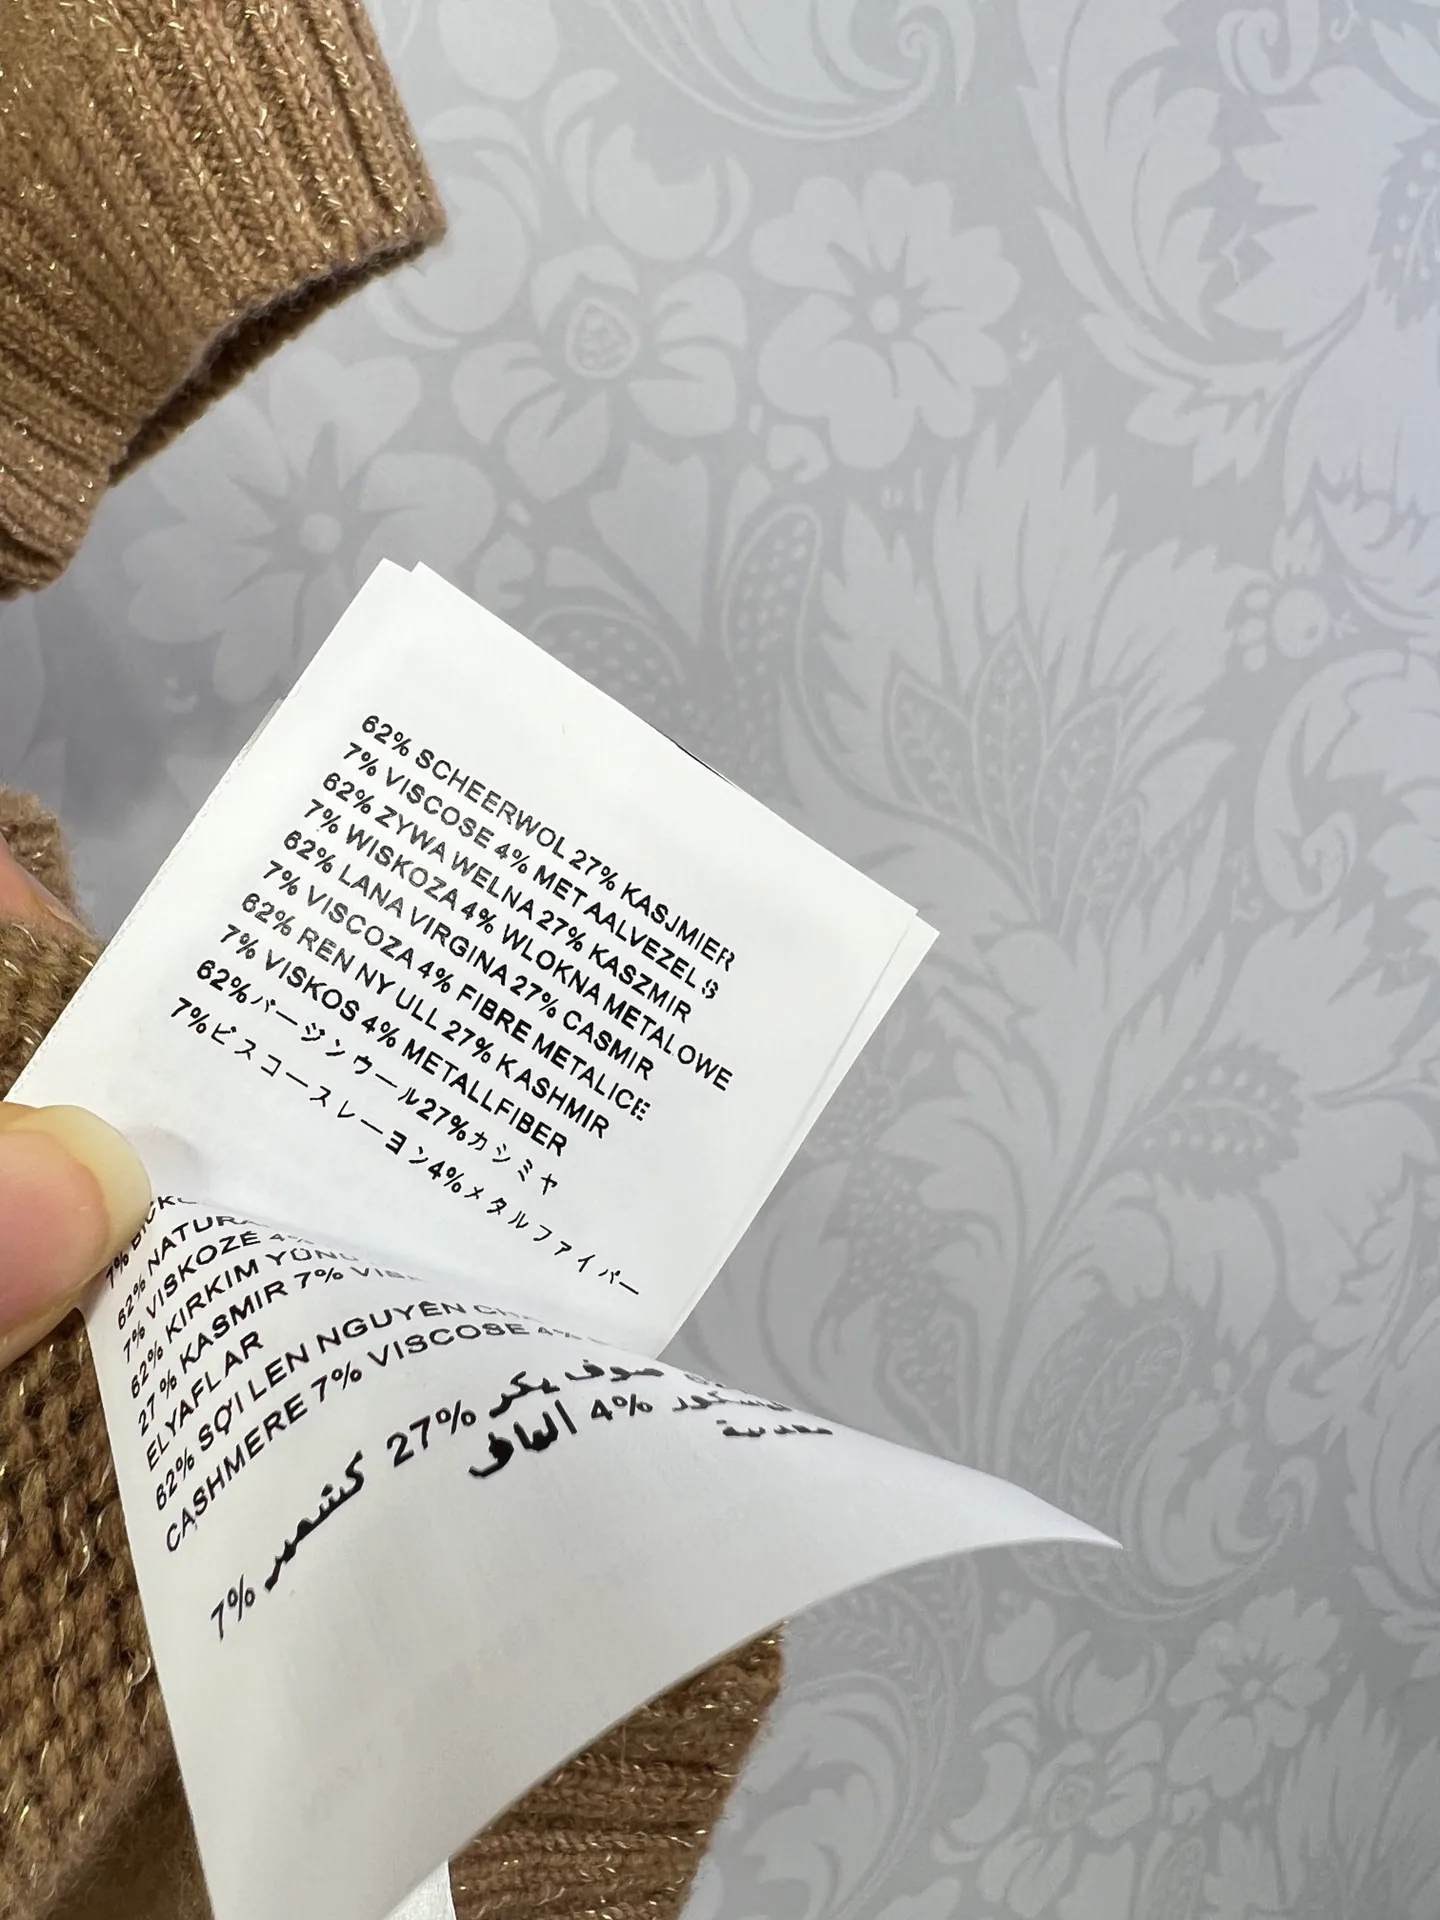 62% SCHEERWOL 27% KASJMIER
7% VISCOSE 4% MET AALVEZEL S
62% ZYWA WELNA 27% KASZMIR
7% WISKOZA 4% WLOKNA METALOWE
62% LANA VIRGINA 27% CASMIR
7% VISCOZA 4% FIBRE METALICE
62% REN NY ULL 27% KASHMIR
7% VISKOS 4% METALLFIBER
62%バージンウール27%カシミヤ
7%ビスコースレーヨン4%メタルファイバー
7%
62%
7% VISKOZĖ 4%
62% KIRKIM YÜNÜ
27 % KASMIR 7%
ELYAFLAR
62% SỢI LEN NGUYÊN
CASHMERE 7% VISCOSE 4%
صوف بكر 27% كشمير 7%
4% ألياف
معدنية